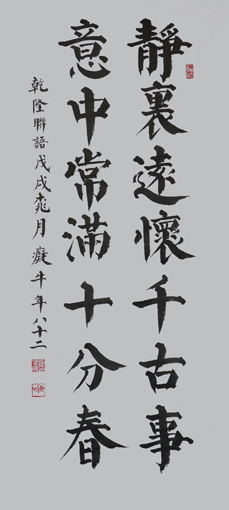 靜裏遠懷千古事
意中常滿十分春
乾隆聯語戊戌桃月癡牛年八十二